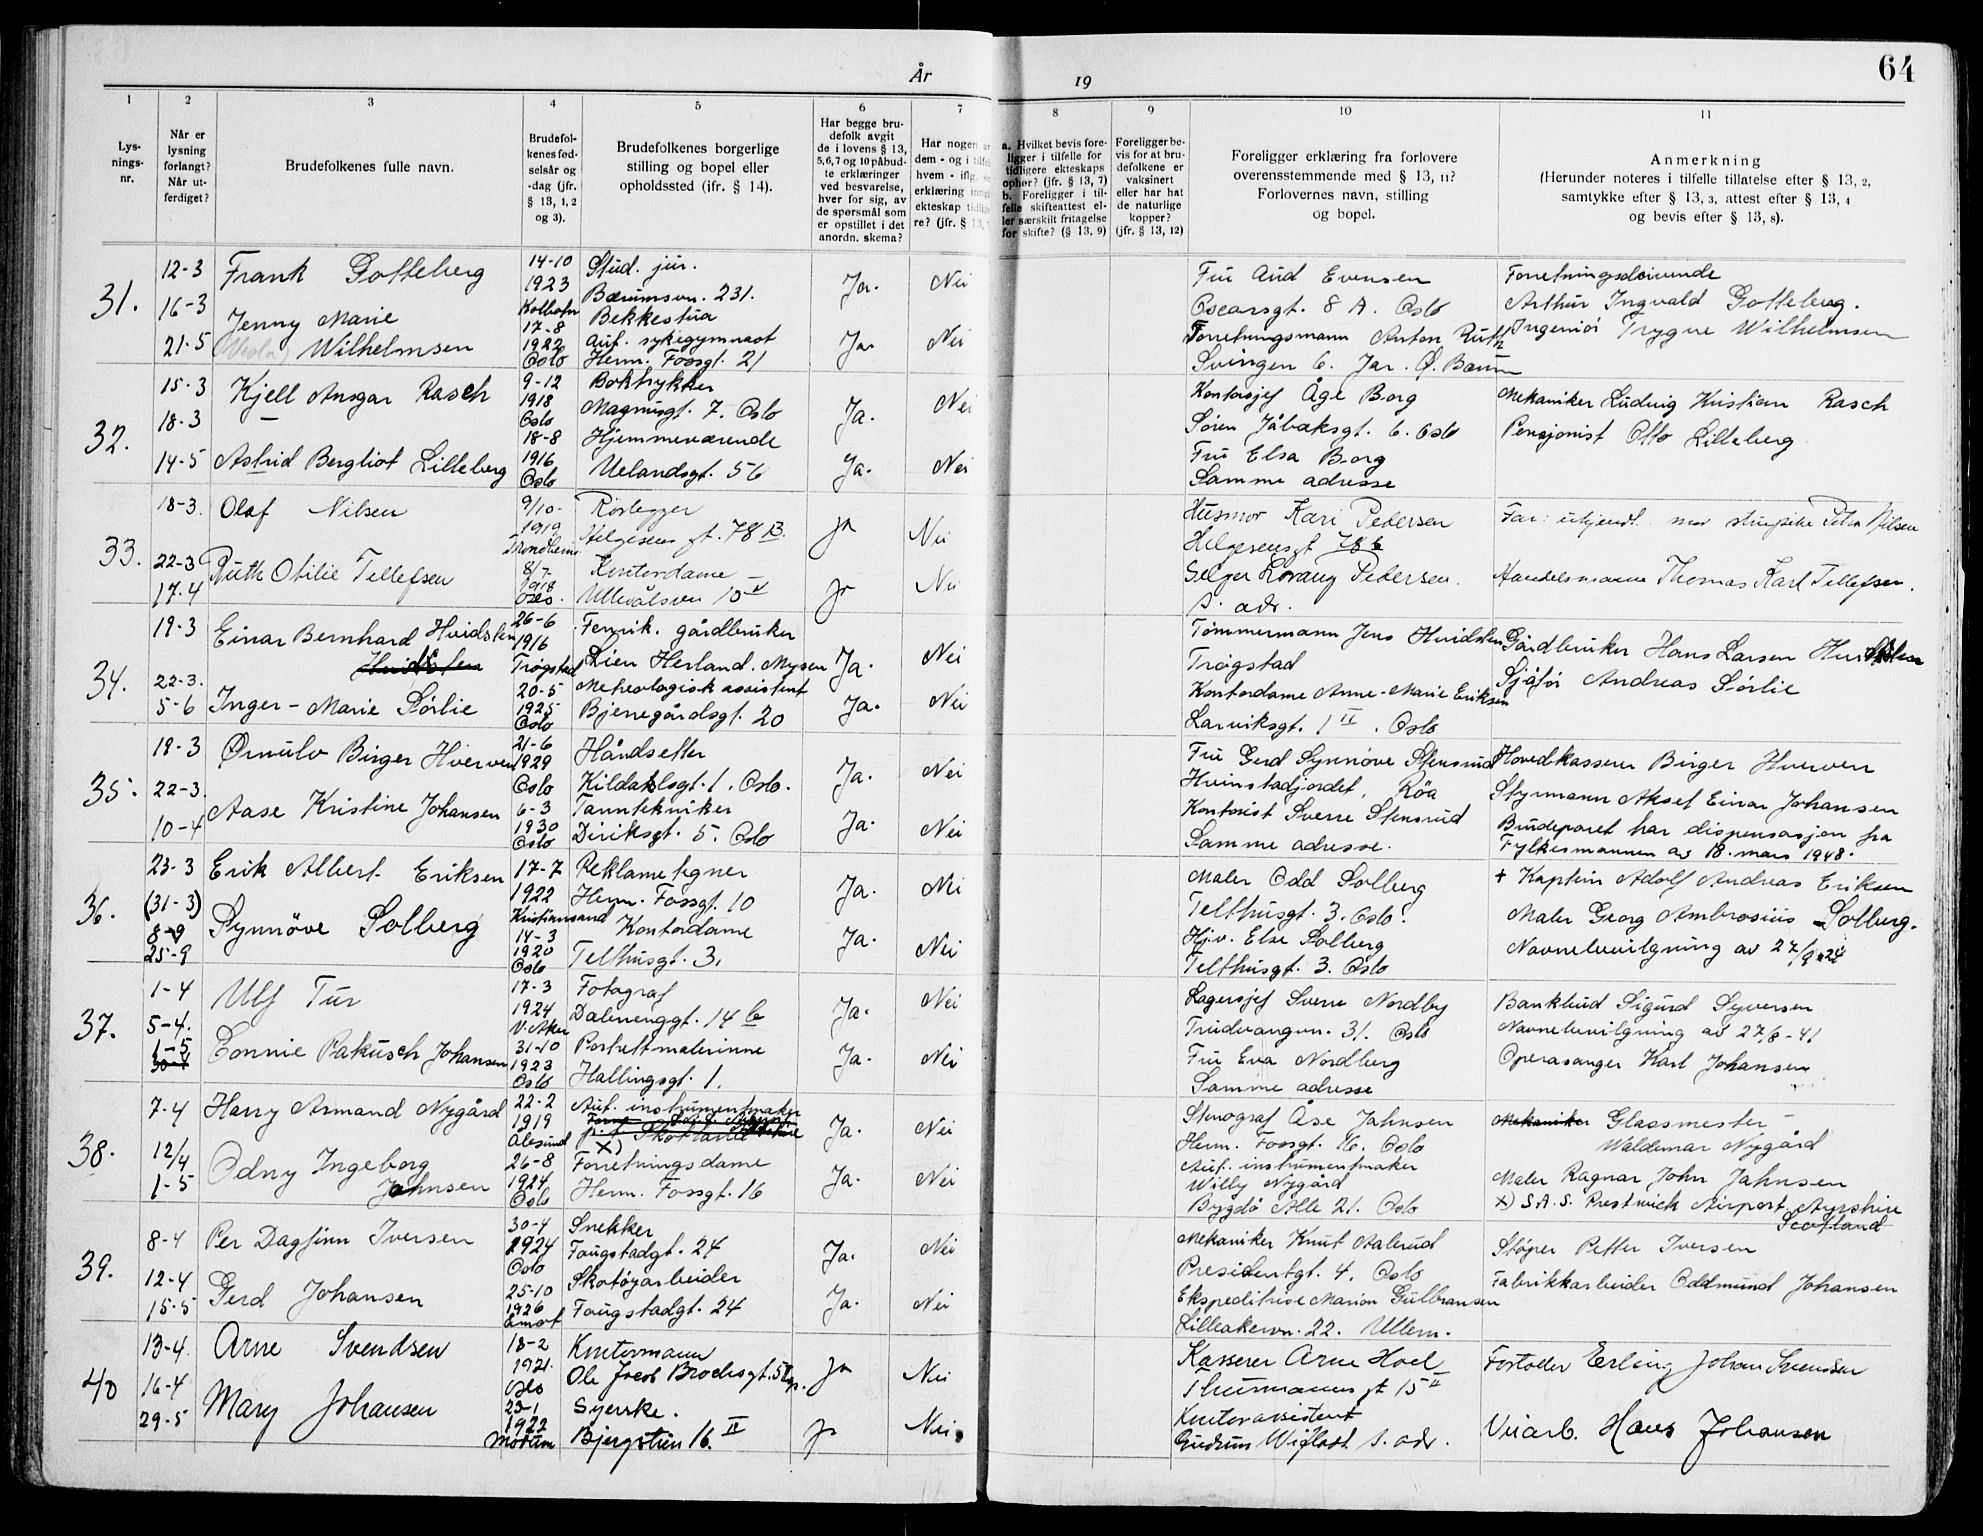 År 19
64
1 2 3 4 5 6 7 8 9 10 11
Lys-
nings-
nr.
Når er
lysning
forlangt?
Når ut-
ferdiget?
Brudefolkenes fulle navn.
Brudefol-
kenes fød-
selsår og
-dag (jfr.
§ 13, 1, 2
og 3).
Brudefolkenes borgerlige
stilling og bopel eller
opholdssted (jfr. § 14).
Har begge bru-
defolk avgit
de i lovens § 13,
5,6,7 og 10 påbud-
te erklæringer
ved besvarelse,
hver for sig, av
de spørsmål som
er opstillet i det
anordn. skema?
Har nogen
dem - og i
hvem - iflg.
erklæring
ekteskap
re? (jfr. § 13,
a. Hvilket bevis fore-
ligger i tilfelle for
tidligere ekteskaps
ophør? (jfr. § 13, 7)
b. Foreligger i til-
felle skifteattest el-
ler særskilt fritagelse
for skifte? (§ 13, 9)
Foreligger be-
vis for at bru-
defolkene er
vaksinert
eller har hat
de naturlige
kopper?
(jfr. § 13, 12)
Foreligger erklæring fra forlovere
overensstemmende med § 13, 11?
Forlovernes navn, stilling
og bopel.
Anmerkning
(Herunder noteres i tilfelle tillatelse efter § 13, 2,
samtykke efter § 13, 3, attest efter § 13, 4
og bevis efter § 13, 8).
31.
12-3
16-3
21-5
Frank Gotteberg
Jenny Marie
Wilhelmsen
14-10
1923
Kolbotn
17-8
1922
Oslo
Stud. jur.
Bærumsvn. 231.
Bekkestua
Aut. sykegymnast
Herm. Fossgt. 21
Ja. Nei
Ja Nei
Fru Aud Evensen
Oscarsgt. 8 A. Oslo
Forretningsmann Anton Ruth
Svingen 6. Jar. Ø. Bærum
Forretningsdrivende
Arthur Ingvald Gotteberg.
Ingeniør Trygve Wilhelmsen
32.
15-3
18-3
14-5
Kjell Ansgar Rasch
Astrid Bergliot Lilleberg
9-12
1918
Oslo
18-8
1916
Oslo
Boktrykker
Magnusgt. 7. Oslo
Hjemmeværende
Uelandsgt. 56
Ja. Nei
Ja. Nei
Kontorsjef Åge Borg
Søren Jåbæksgt. 6. Oslo
Fru Elsa Borg
Samme adresse
Mekaniker Ludvig Kristian Rasch
Pensjonist Otto Lilleberg
33.
18-3.
22-3
17.4
Olaf Nilsen
Ruth Otilie Tellefsen
9/10-
1919
Trondheim
8/7-
1918
Oslo.
Rørlegger
Helgesens gt. 78 B.
Kontordame
Ullevålsvn 10 V
Ja Nei
Ja Nei
Husmor Kari Pedersen
Helgesensgt 78 b
Selger Lorang Pedersen.
s. adr.
Far: ukjendt. mor Petra Nilsen
Handelsmann Thomas Karl Tellefsen.
34.
19-3
22-3.
5-6
Einar Bernhard Hvidsten
Inger-Marie Sørlie
26-6
1916
Trøgstad
20-5
1925
Oslo
Fenrik. gårdbruker
Lien Herland. Mysen
Meteologisk assistent
Bjenegårdsgt. 20
Ja. Nei
Ja. Nei
Tømmermann Jens Hvidsten
Trøgstad
Kontordame Anne-Marie Eriksen
Larviksgt. 1 II. Oslo
Gårdbruker Hans Larsen Hvidsten
Sjåfør Andreas Sørlie
35.
19-3
22-3.
10-4
Ørnulv Birger Hverven
Aase Kristine Johansen
21-6
1929
Oslo
6-3
1930
Oslo
Håndsetter
Kildalsgt. 1. Oslo.
Tanntekniker
Diriksgt. 5. Oslo
Ja. Nei
Ja. Nei
Fru Gerd Synnøve Stensrud
Hvinstadjordet, Röa
Kontorist Sverre Stensrud
Samme adresse.
Hovedkasserer Birger Hverven
Styrmann Aksel Einar Johansen
Brudeparet har dispensasjon fra
Fylkesmannen av 18. mars 1948.
36.
23-3
(31-3)
8-9
25-9
Erik Albert Eriksen
Synnöve Solberg
17-7
1922
Kristiansand
14-3
1920
Oslo
Reklametegner
Herm. Fossgt. 10
Kontordame
Telthusgt. 3.
Ja. Nei
Ja. Nei
Maler Odd Solberg
Telthusgt. 3. Oslo.
Hjv. Else Solberg
Telthusgt. 3. Oslo
+ Kaptein Adolf Andreas Eriksen
Maler Georg Ambrosius Solberg.
Navnebevilgning av 27/9-24
37.
1-4
5-4.
1-5
30-4
Ulf Tur
Connie Pakusch Johansen
17-3
1924
V. Aker
31-10
1923
Oslo
Fotograf
Dælenenggt. 14 b
Portrettmalerinne
Hallingsgt. 1.
Ja. Nei
Ja. Nei
Lagersjef Sverre Nordby
Trudvangvn. 31. Oslo
Fru Eva Nordberg
Samme adresse
Bankbud Sigurd Syversen
Navnebevilgning av 27/8-41
Operasanger Karl Johansen
38.
7-4
12/4
1-5
Harry Armand Nygård
Odny Ingeborg
Jahnsen
22-2
1919
Ålesund
26-8
1924
Oslo
Aut. instrumentmaker
X)
Forretningsdame
Herm. Fossgt. 16
Ja. Nei
Ja. Nei
Stenograf Åse Jahnsen
Herm. Fossgt. 16. Oslo
Aut. instrumentmaker
Willy Nygård
Bygdö Alle 21. Oslo
Mekaniker Glassmester
Waldemar Nygård
Maler Ragnar John Jahnsen
X) S.A.S. Prestwick Airport Ayrshire
Scotland
39.
8-4
12-4
15-5
Per Dagfinn Iversen
Gerd Johansen
30-4
1924
Oslo
25-10
1926
Snekker
Fougstadgt. 24
Skotöyarbeider
Fougstadgt. 24
Ja. Nei
Ja. Nei
Mekaniker Knut Aalerud
Presidentgt. 4. Oslo
Ekspeditrise Marion Gulbransen
Lilleakervn. 22. Ullern.
Støper Petter Iversen
Fabrikkarbeider Oddmund Johansen
40
13-4.
16-4
29-5
Arne Svendsen
Mary Johansen
18-2
1921.
Oslo
23-1
1922
Modum
Kontormann
Ole Jacob Brochsgt. 5
Syerske.
Bjergstien 16. II
Ja Nei
Ja Nei.
Kasserer Arne Hoel
Thurmannsgt 15 II
Kontorassistent
Gudrun s. adr.
Erling Johan Svendsen
Hans Johansen